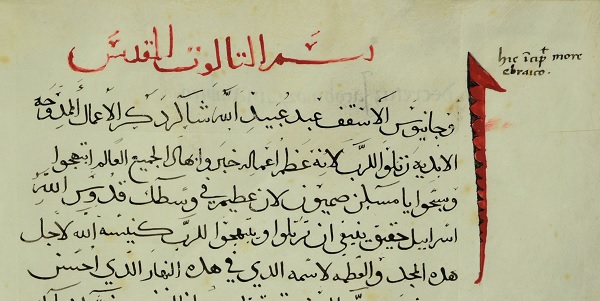 بسم التالوت المقدس
hic incip more
ebraico.
اوجانيوس الاسقف عبد عبيد الله الاعمال
الابديه رتلوا للرب لانه عظم اعماله خبروا لجميع العالم ابتهجوا
وسبحوا يا لان عظيم في وسطك قدوس الله
اسراييل حقيق ينبغي ان ترتلوا وتبتهجوا للرب كنيسه الله لاجل
هده المجد والعظمه لاسمه الدي في هده النهار الدي احسن